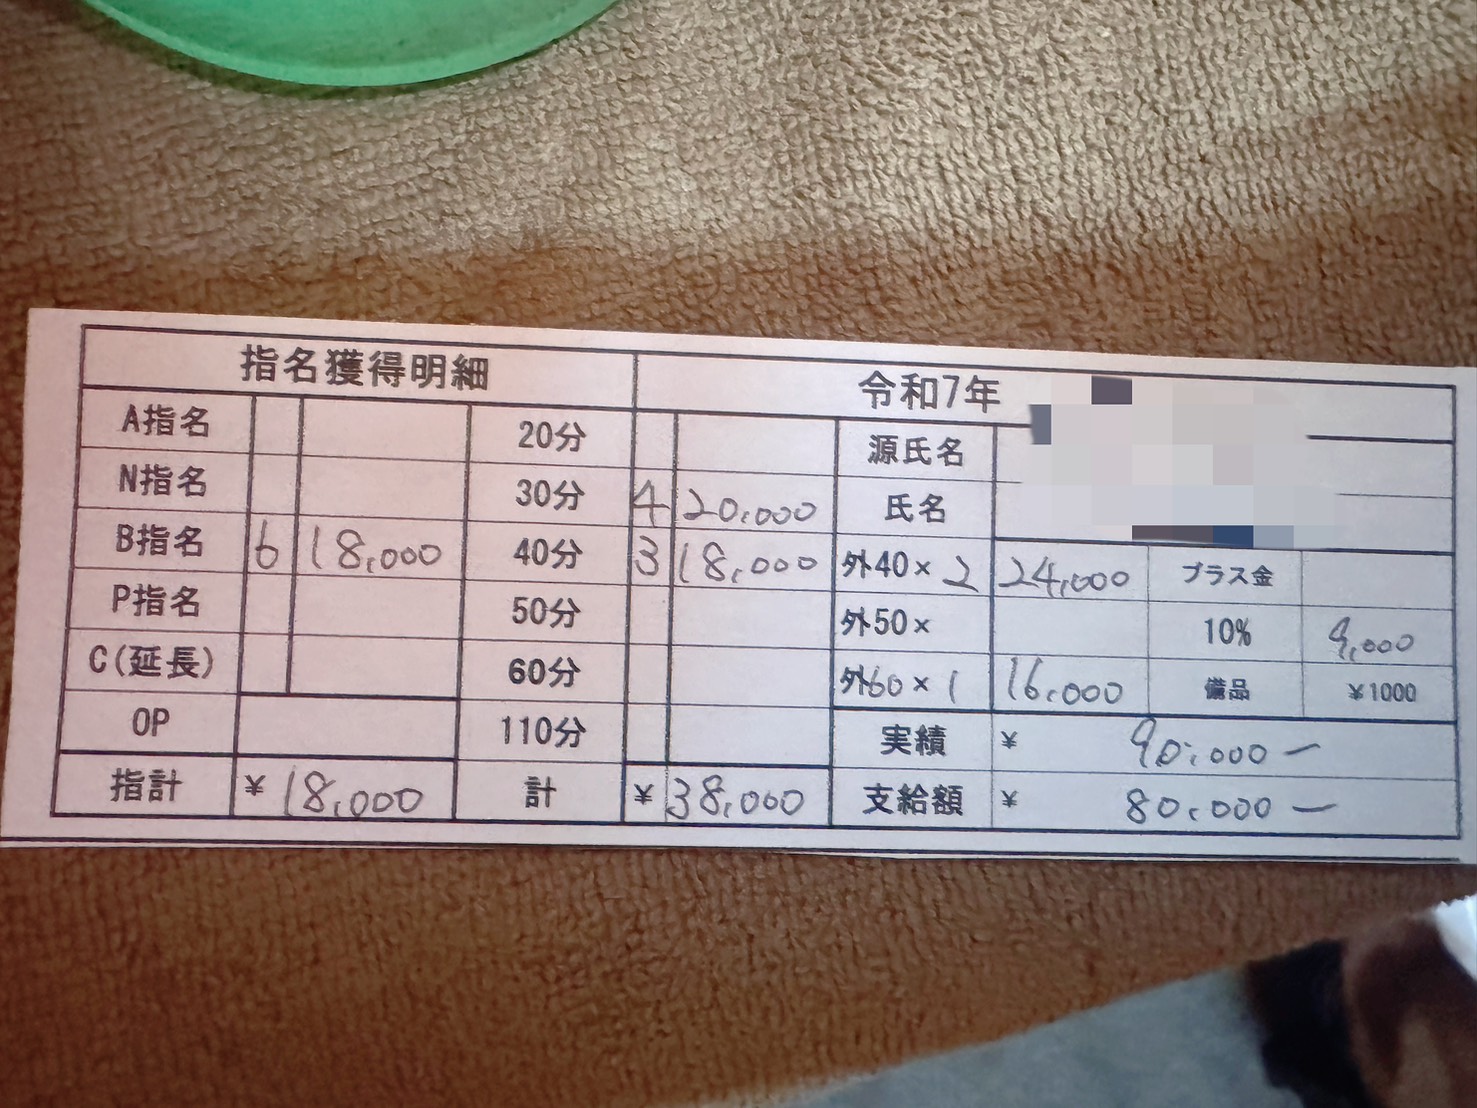 指名獲得明細 令和7年
A指名 20分 源氏名
N指名 30分 4 20,000 氏名
B指名 6 18,000 40分 3 18,000 外40× 2 24,000 プラス金
P指名 50分 外50× 10% 9,000
C(延長) 60分 外60× 1 16,000 備品 ¥1000
OP 110分 実績 ¥ 90,000-
指計 ¥ 18,000 計 ¥ 38,000 支給額 ¥ 80,000-